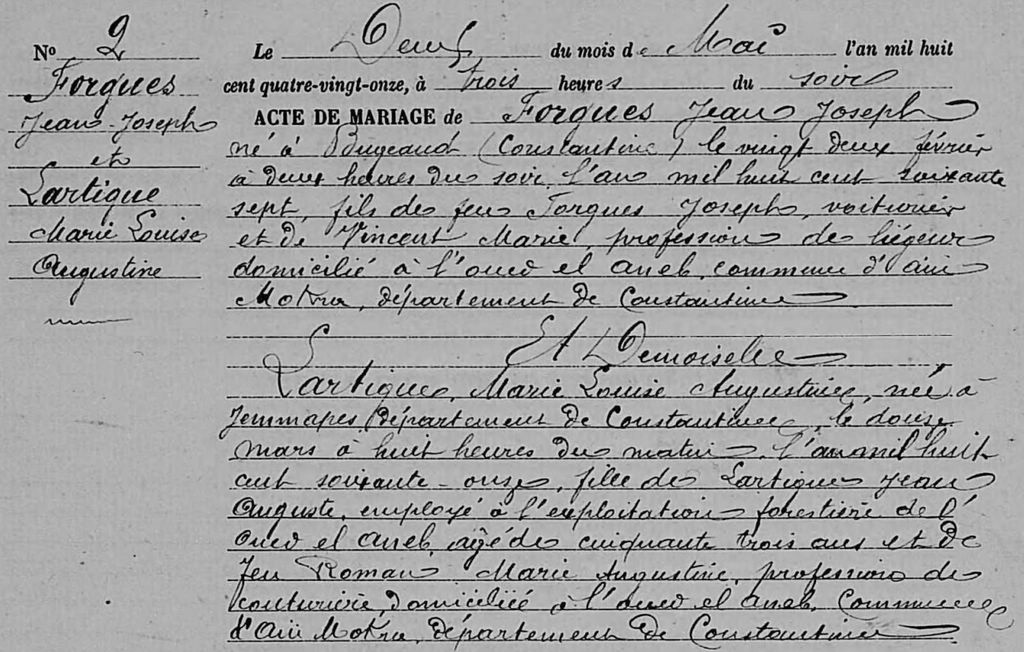 N° 2
Forgues
Jean Joseph
et
Lartigue
Marie Louise
Augustine
Le Deux du mois de Mai l'an mil huit
cent quatre-vingt-onze, à trois heures du soir
ACTE DE MARIAGE de Forgues Jean Joseph
né à Bugeaud (Constantine) le vingt deux février
à deux heures du soir, l'an mil huit cent soixante
sept, fils de feu Forgues Joseph, voiturier
et de Vincent Marie, profession de liégeur
domicilié à l'oued el aneb, commune d'ain
Mokra, département de Constantine
Et Demoiselle
Lartigue, Marie Louise Augustine, née à
Jemmapes, département de Constantine, le douze
mars à huit heures du matin, l'an mil huit
cent soixante-onze, fille de Lartigue Jean
Auguste, employé à l'exploitation forestière de l'
oued el aneb, agé de cinquante trois ans et de
feu Roman Marie Augustine, profession de
couturière, domiciliée à l'oued el aneb, commune
d'Ain Mokra, département de Constantine